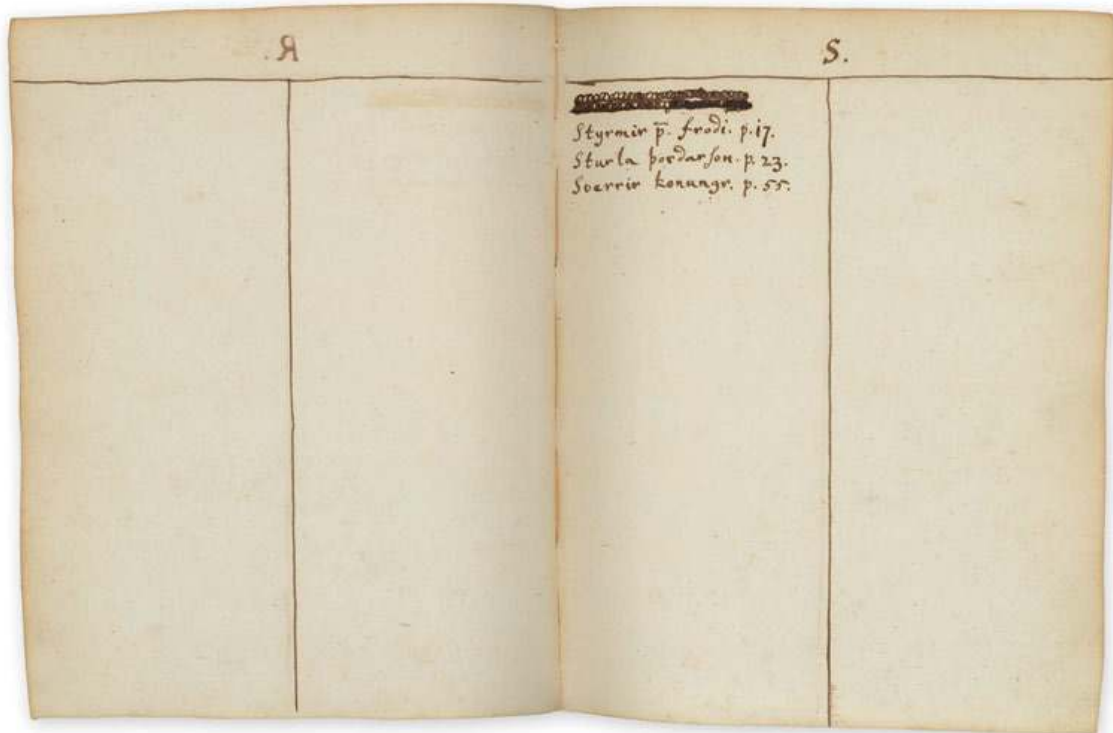 R.
S.
Styrmir p̄. frodi. p. 17.
Sturla þordarson. p. 23.
Sverrir konungr. p. 55.